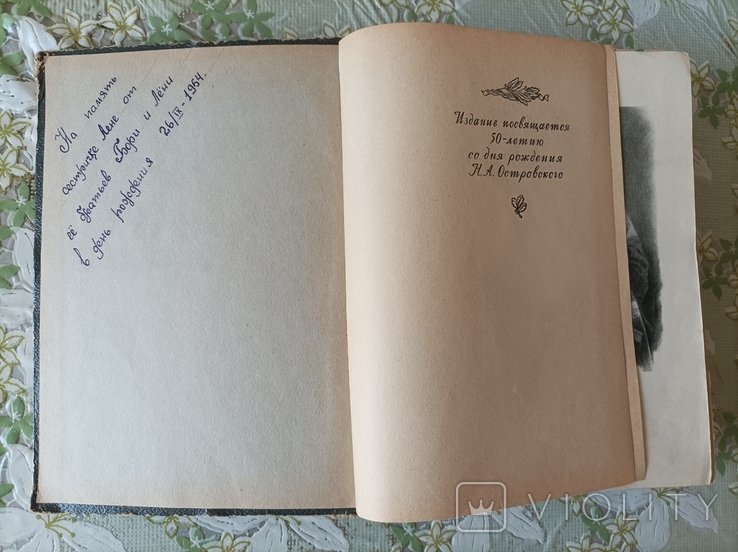 На память
сестричке Лене от
её братьев Бори и Лёни
в день рождения 26/IX-1954.
Издание посвящается
50-летию
со дня рождения
Н.А. Островского
VIOLITY